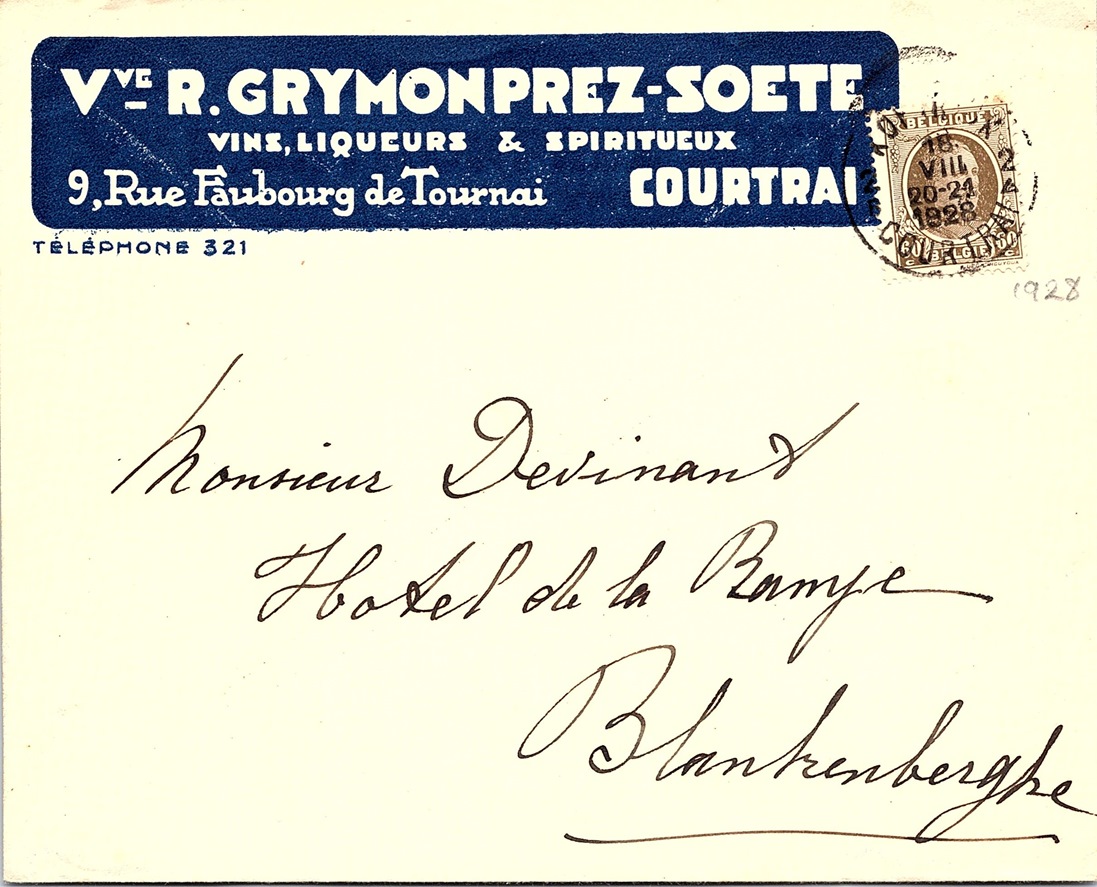 Vve R. GRYMONPREZ-SOETE
VINS, LIQUEURS & SPIRITUEUX
9, Rue Faubourg de Tournai COURTRAI
TÉLÉPHONE 321
BELGIQUE
18
VIII
20-21
1928
2 2
COURTRAI
BELGIË
1928
Monsieur Devinant
Hotel de la Rampe
Blankenberghe